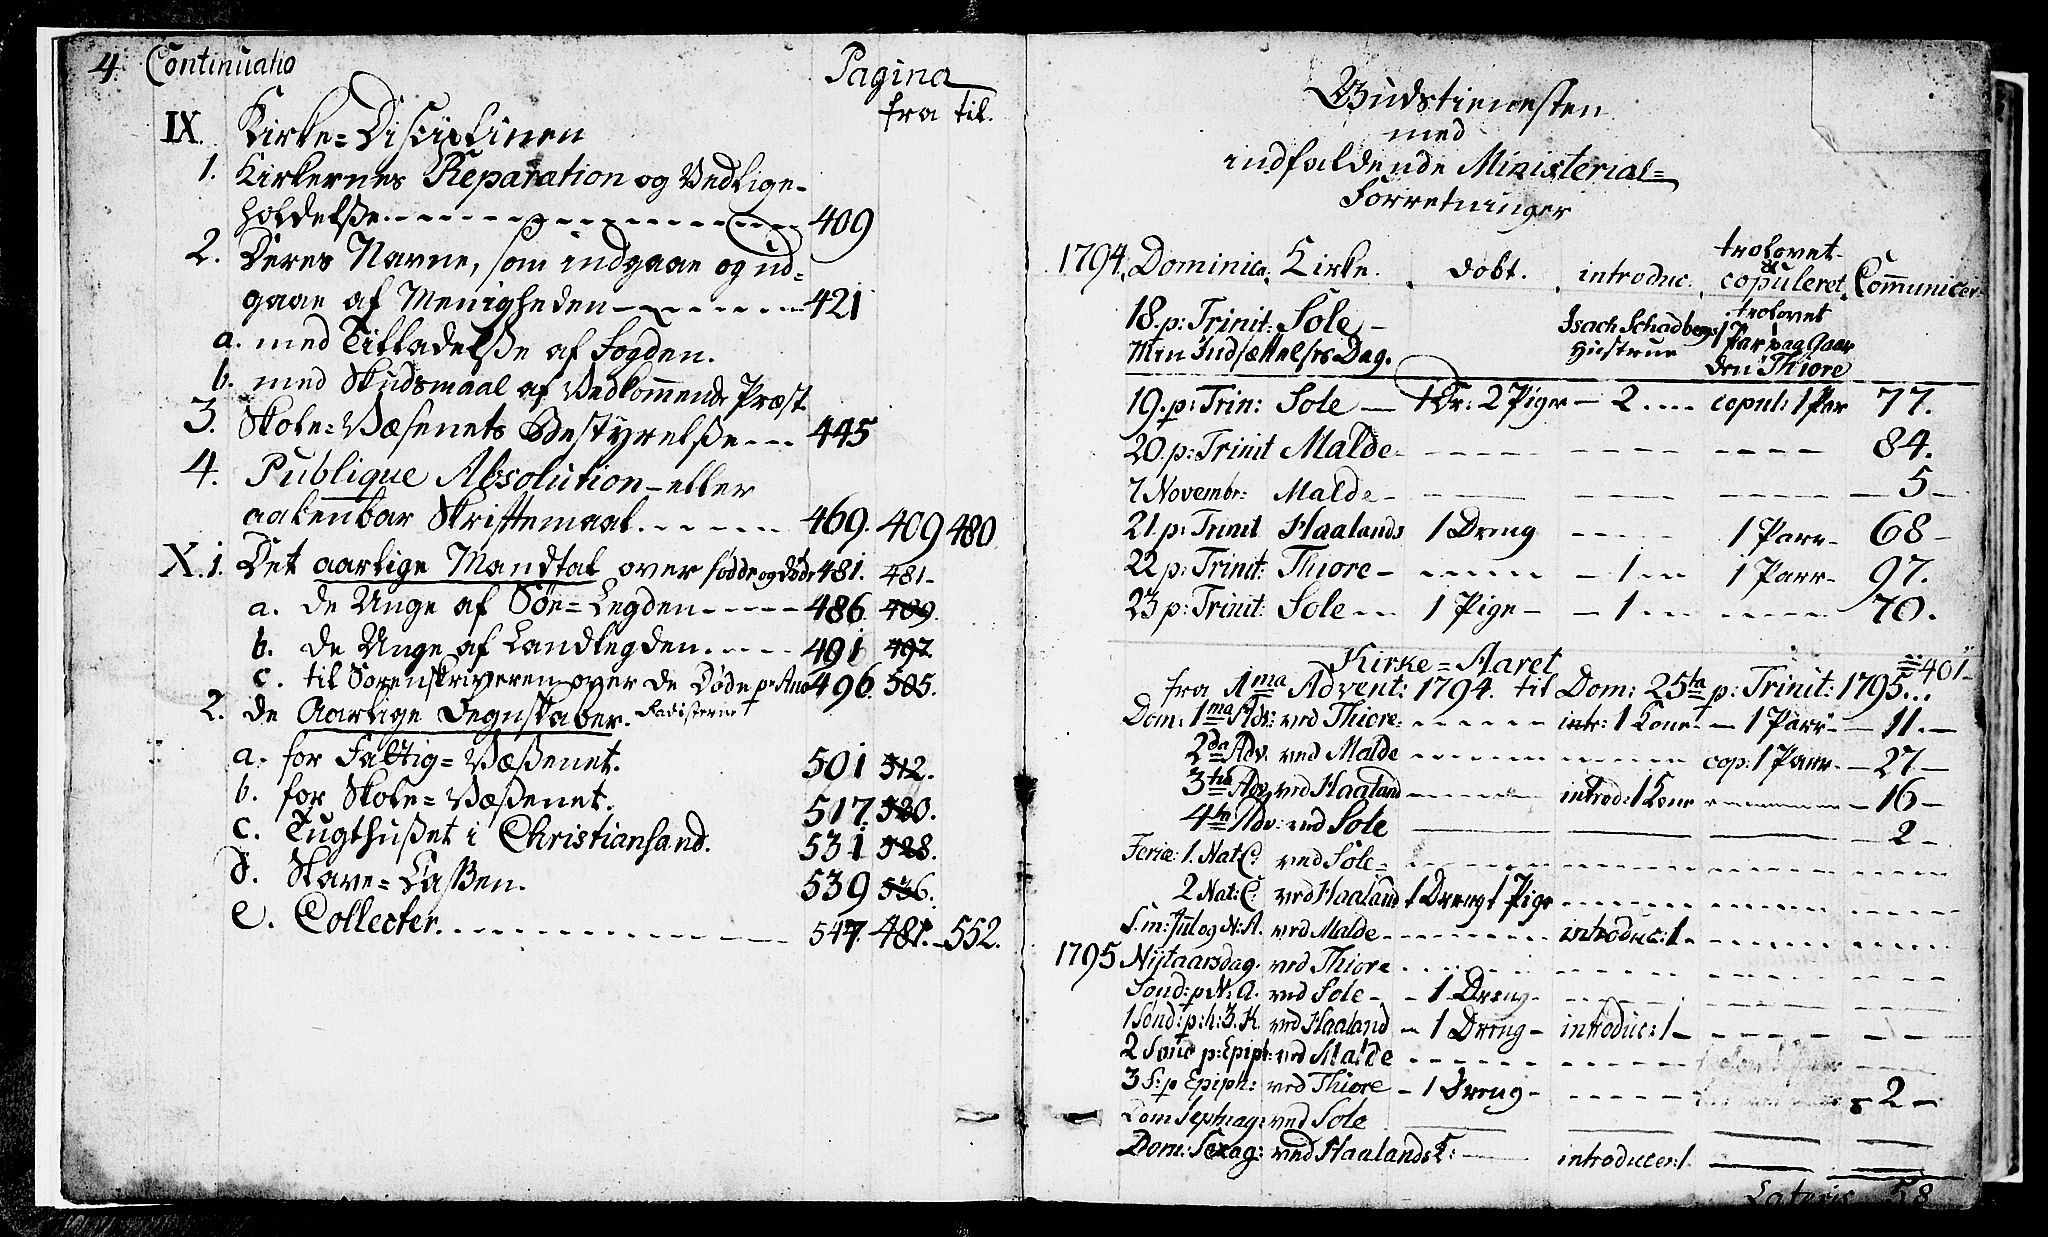 4. Continuatio
Pagina
fra til.
IX. Kirke=Disciplinen
1. Kirkernes Reparation og Vedlige-
holdelße. 409
2. Deres Navne, som indgaae og ud=
gaae af Menigheden 421
a. med Tilladelße af Fogden.
b. med Skudsmaal af Vedkommende Præst
3. Skole=Væsenets Bestyrelße 445
4. Publique Absolution – eller
aabenbar Skriftemaal. 469. 409 480
X. 1. Det aarlige Mandtal over fødde og døde 481. 481-
a. de Unge af Søe=Legden 486. 489.
b. de Unge af Landlegden. 491 497.
c. til Sorenskriveren over de Døde pr Ano 496. 505.
2. de Aarlige Regnskaber.
a. for Fattig=Væßenet. 501 512.
b. for Skole=Væßenet. 517. 520.
c. Tugthußet i Christiansand. 531 528.
d. Slave=Caßen. 539 536.
e. Collecter. 547. 481. 552.
Gudstienesten
med
indfaldende Ministerial=
Forretninger
trolovet
&
1794. Dominica. Kirke. døbt. introduc. copuleret. Com̄unicer:
18. p: Trinit: Sole – Isach Schadbergs trolovet
Min Indsættelses Dag. Hustrue 1 Par paa Gaar
den Thiore
19. p: Trin: Sole – 1 Dr: 2 Piger – 2 copul: 1 Par 77.
20. p: Trinit Malde 84.
7 Novembr: Malde – 5 –
21. p: Trinit Haalands 1 Dreng 1 Parr 68 –
22 p: Trinit: Thiore – 1 1 Parr 97.
23 p: Trinit: Sole 1 Pige – 1 70.
Kirke=Aaret 401
fra 1ma Advent: 1794. til Dom: 25ta p: Trinit: 1795
Dom: 1ma Adv: ved Thiore intr: 1 Kone – 1 Parr – 11.
2da Adv. ved Malde cop: 1 Parr – 27 –
3tia Adv. ved Haaland introd: 1 Kone – 16 –
4ta Adv: ved Sole 2 –
Feriæ: 1. Nat. C: ved Sole
2 Nat: C: ved Haaland 1 Dreng 1 Pige
S. m: Jul og N: A. ved Malde introduc: 1
1795 Nÿtaarsdag. ved Thiore
Sønd: p N: A. ved Sole – 1 Dreng
1 Sønd: p: h: 3. K. ved Haaland – 1 Dreng – introduc: 1
2 Sønd p: Epiph: ved Malde
3 S: p Epiph: ved Thiore – 1 Dreng – 2 –
Dom Septuag: ved Sole
Dom: Sexag: ved Haalands K: introducer: 1.
Lateris 58